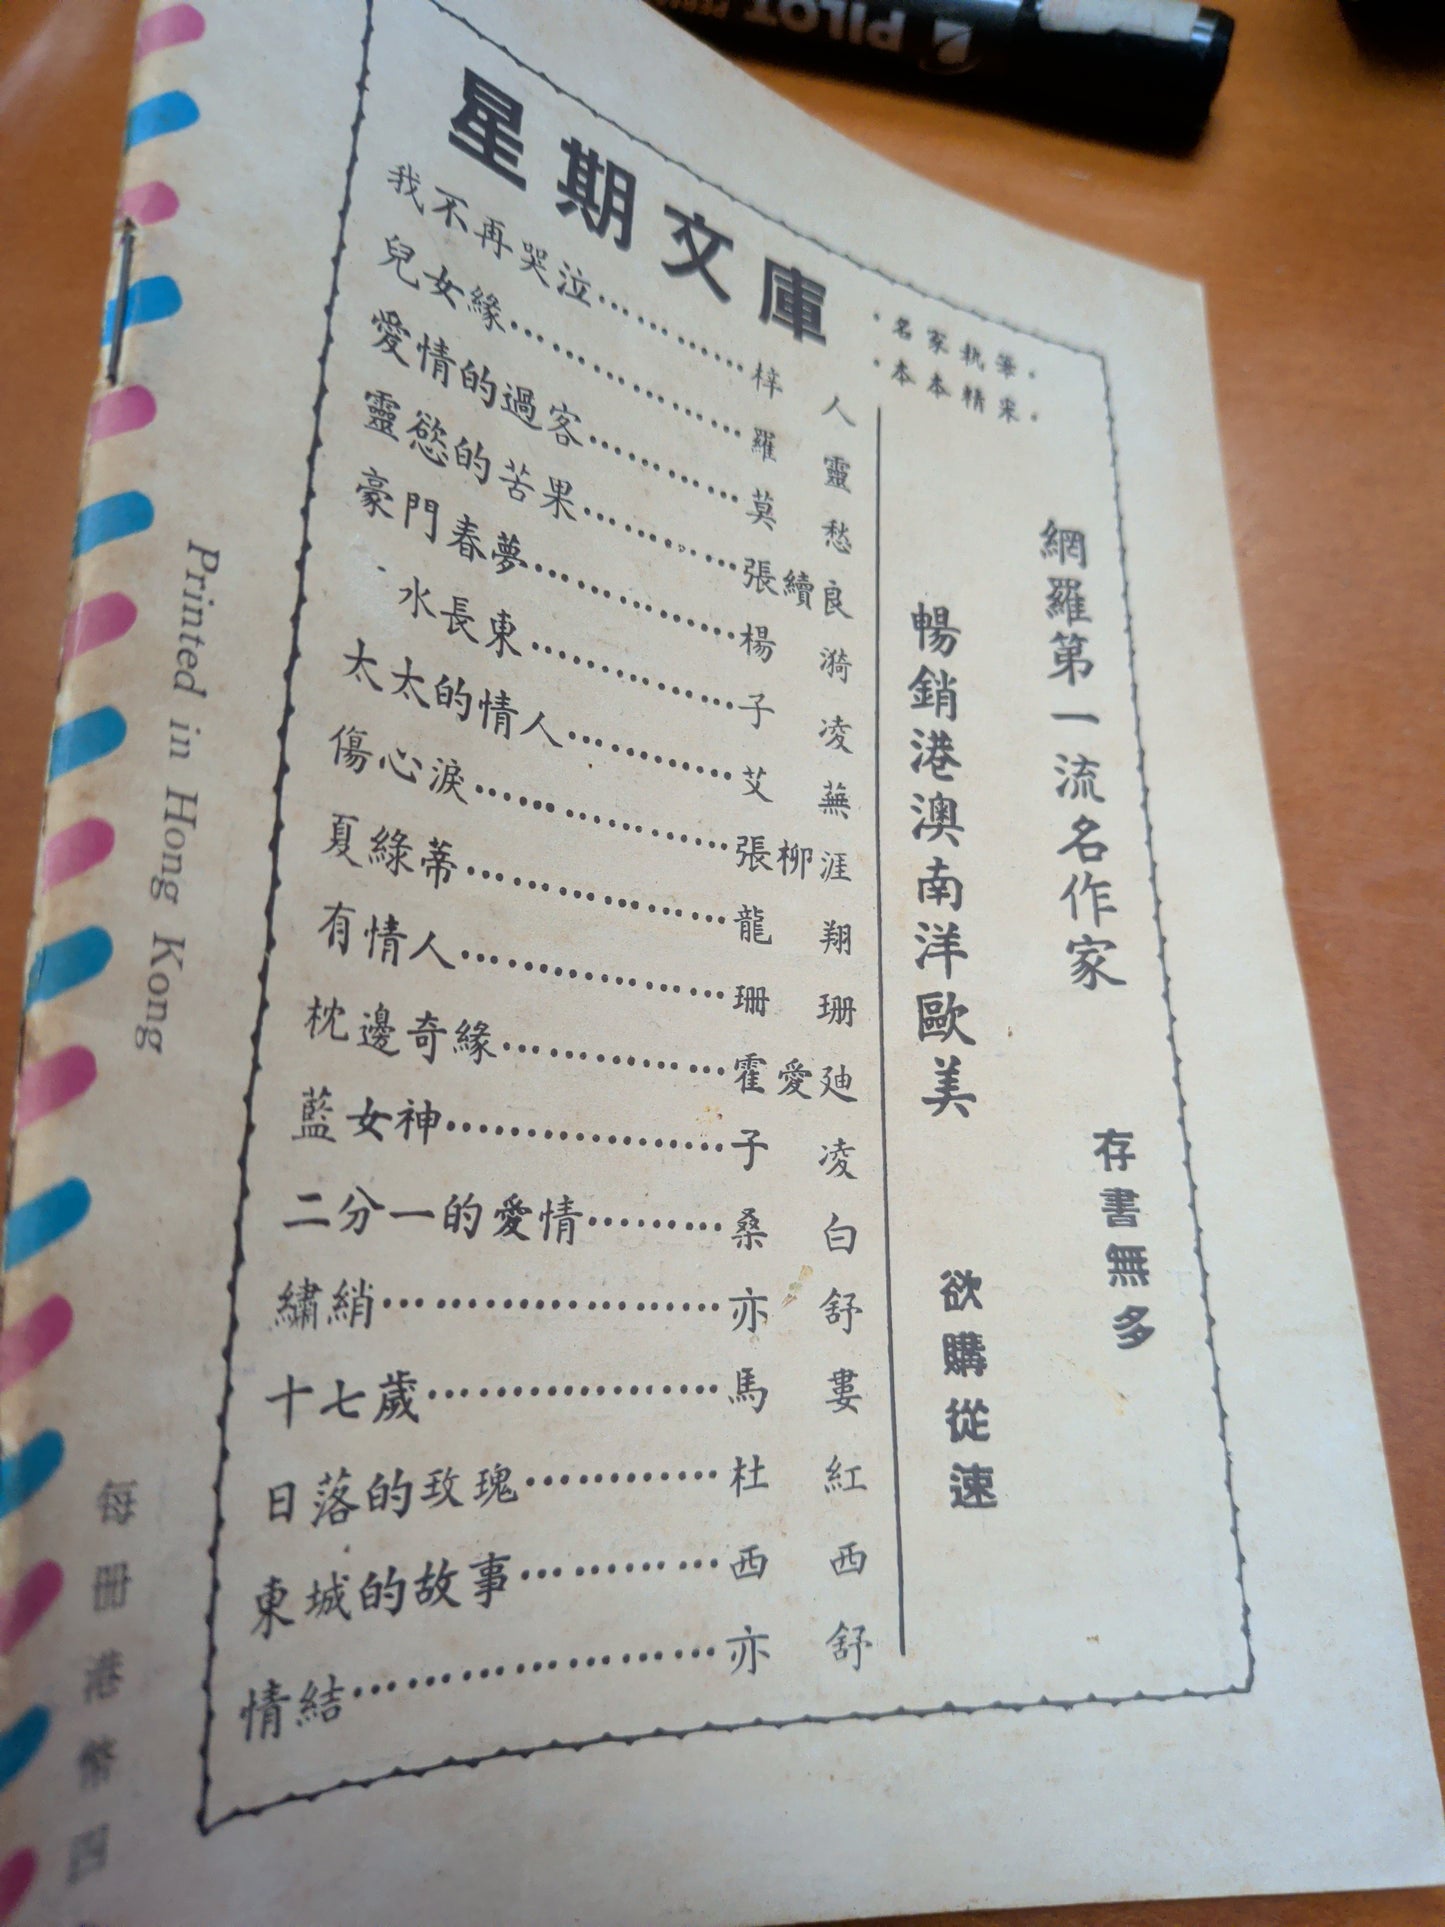 PILOT
星期文庫
·名家執筆·
·本本精采·
我不再哭泣…………梓人
兒女緣…………羅靈
愛情的過客…………莫愁
靈慾的苦果…………張續良
豪門春夢…………楊漪
水長東…………子凌
太太的情人…………艾蕪
傷心淚…………張柳涯
夏綠蒂…………龍翔
有情人…………珊珊
枕邊奇緣…………霍愛迪
藍女神…………子凌
二分一的愛情…………桑白
繡綃…………亦舒
十七歲…………馬婁
日落的玫瑰…………杜紅
東城的故事…………西西
情結…………亦舒
網羅第一流名作家
暢銷港澳南洋歐美
存書無多
欲購從速
Printed in Hong Kong
每冊港幣四